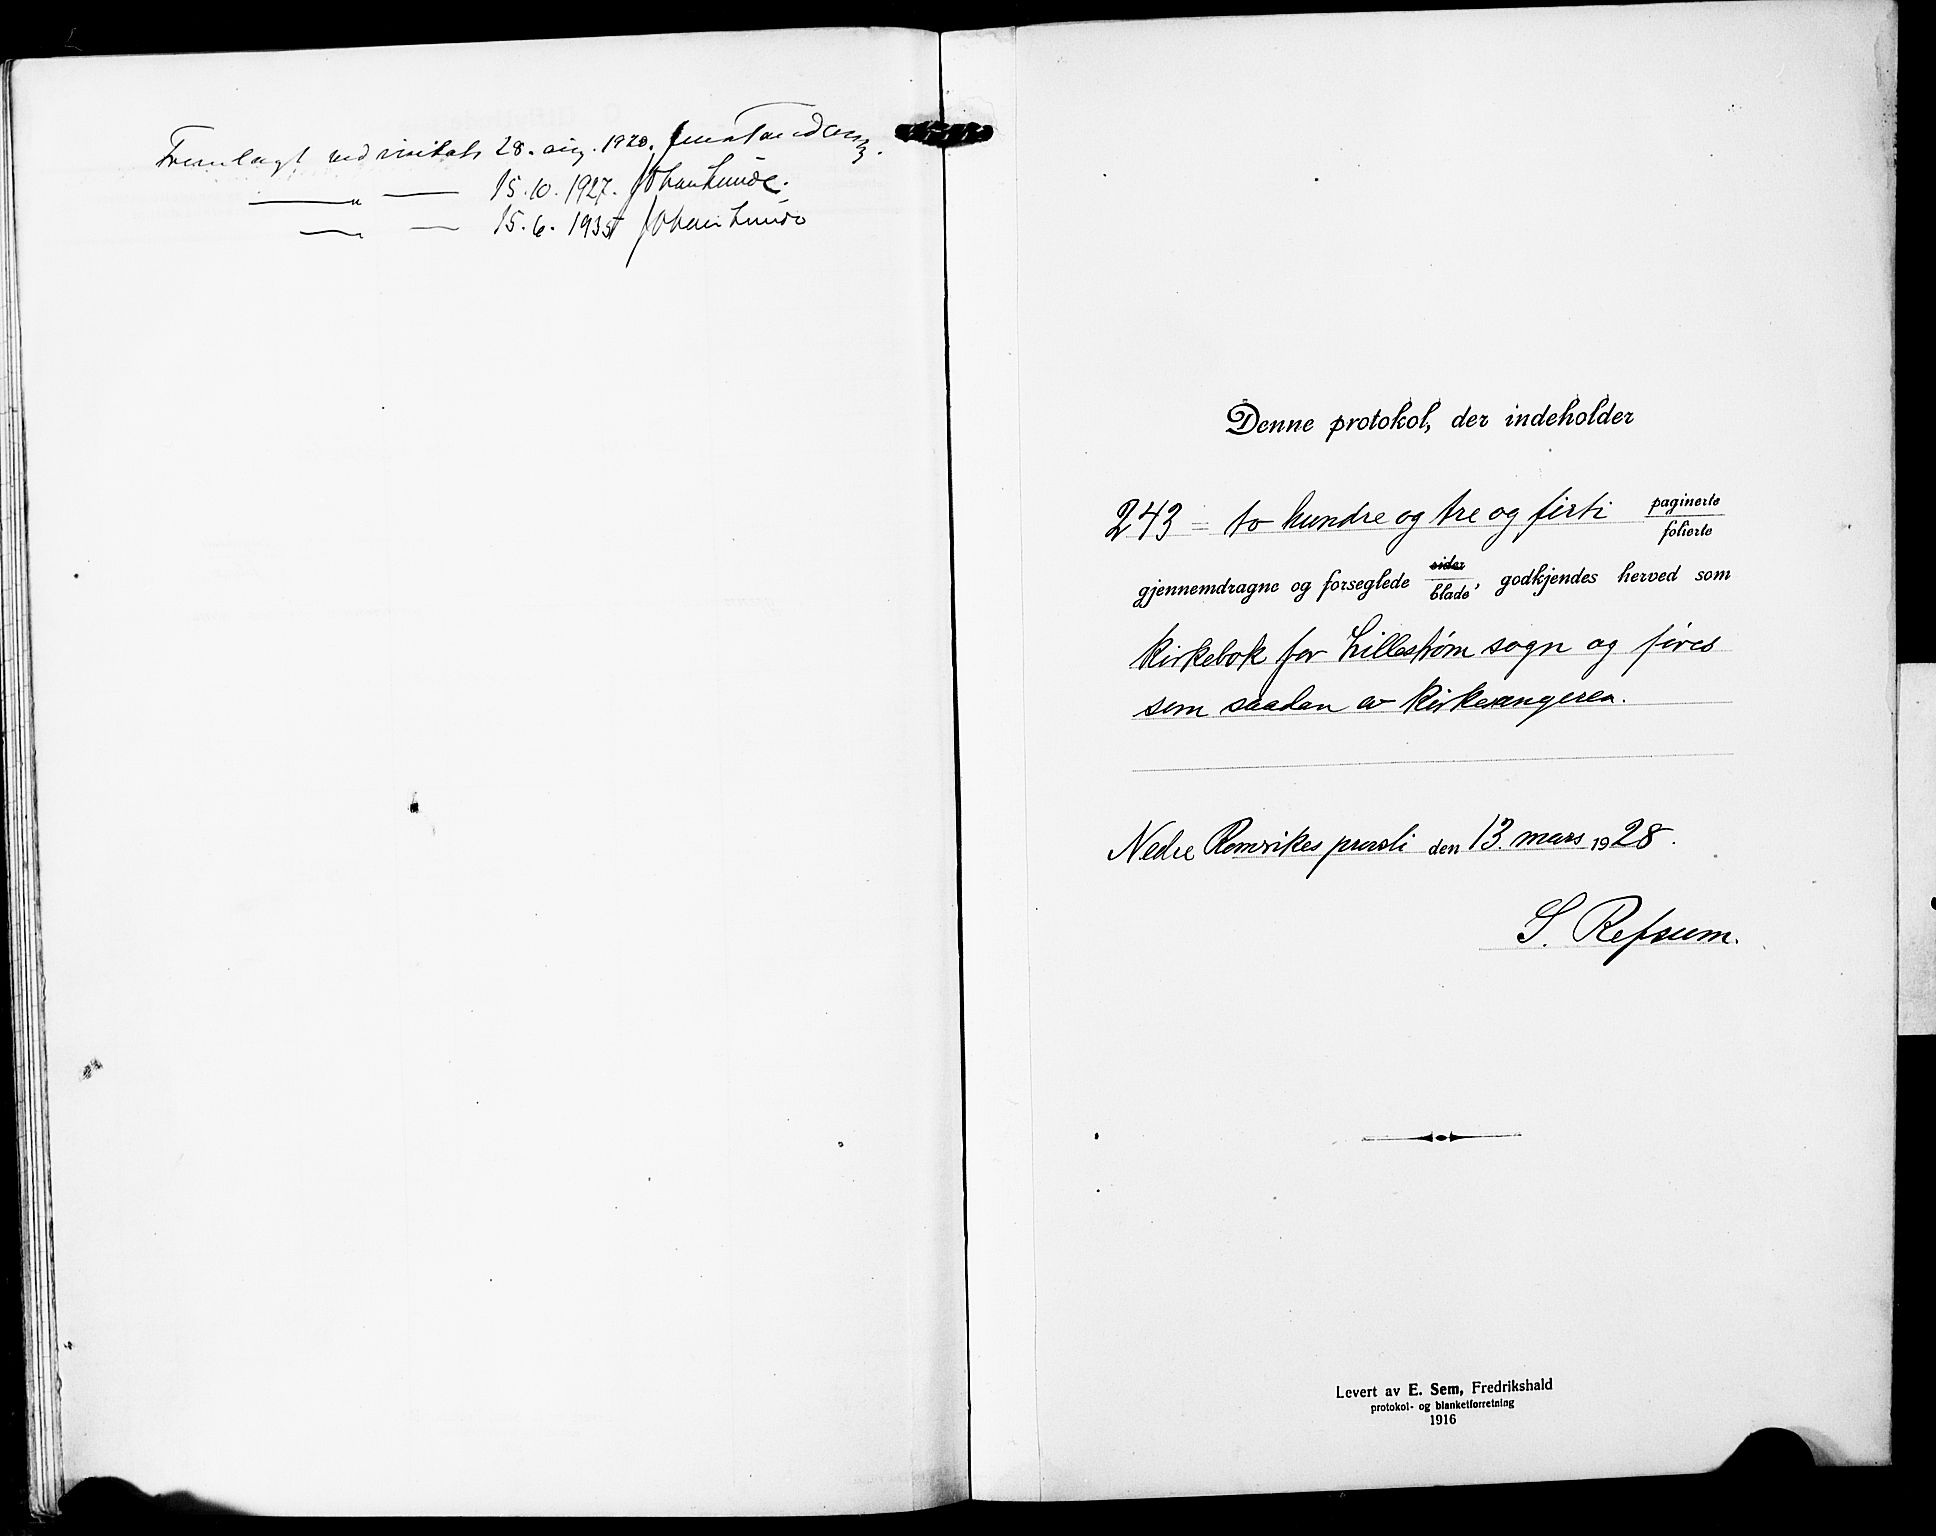 Fremlagt ved visitats 28. aug. 1920. Jens Tandberg.
— „ — 15.10.1927. Johan Lunde.
— „ — 15.6.1935 Johan Lunde
Denne protokol, der indeholder
243 = to hundre og tre og firti paginerte
folierte
gjennemdragne og forseglede sider
blade, godkjendes herved som
kirkebok for Lillestrøm sogn og føres
som saadan av kirkesangeren.
Nedre Romerikes prosti den 13. mars 1928.
S. Refsum.
Levert av E. Sem, Fredrikshald
protokol- og blanketforretning
1916